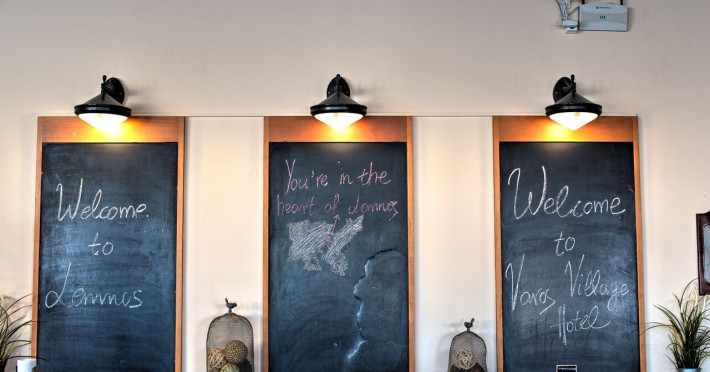 Welcome
to
Lemnos
You're in the
heart of Lemnos
Welcome
to
Varos Village
Hotel